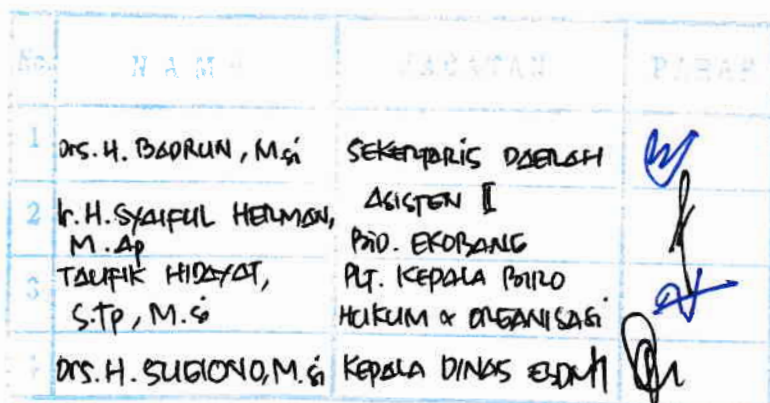 No. NAMA JABATAN PARAF
1 Drs. H. BADRUN, M.Si SEKERTARIS DAERAH
2 Ir. H. SYAIFUL HERMAN, ASISTEN II
M. AP BID. EKOBANG
3 TAUFIK HIDAYAT, PLT. KEPALA BIRO
S.TP, M.Si HUKUM & ORGANISASI
4 Drs. H. SUGIONO, M.Si KEPALA DINAS ESDM